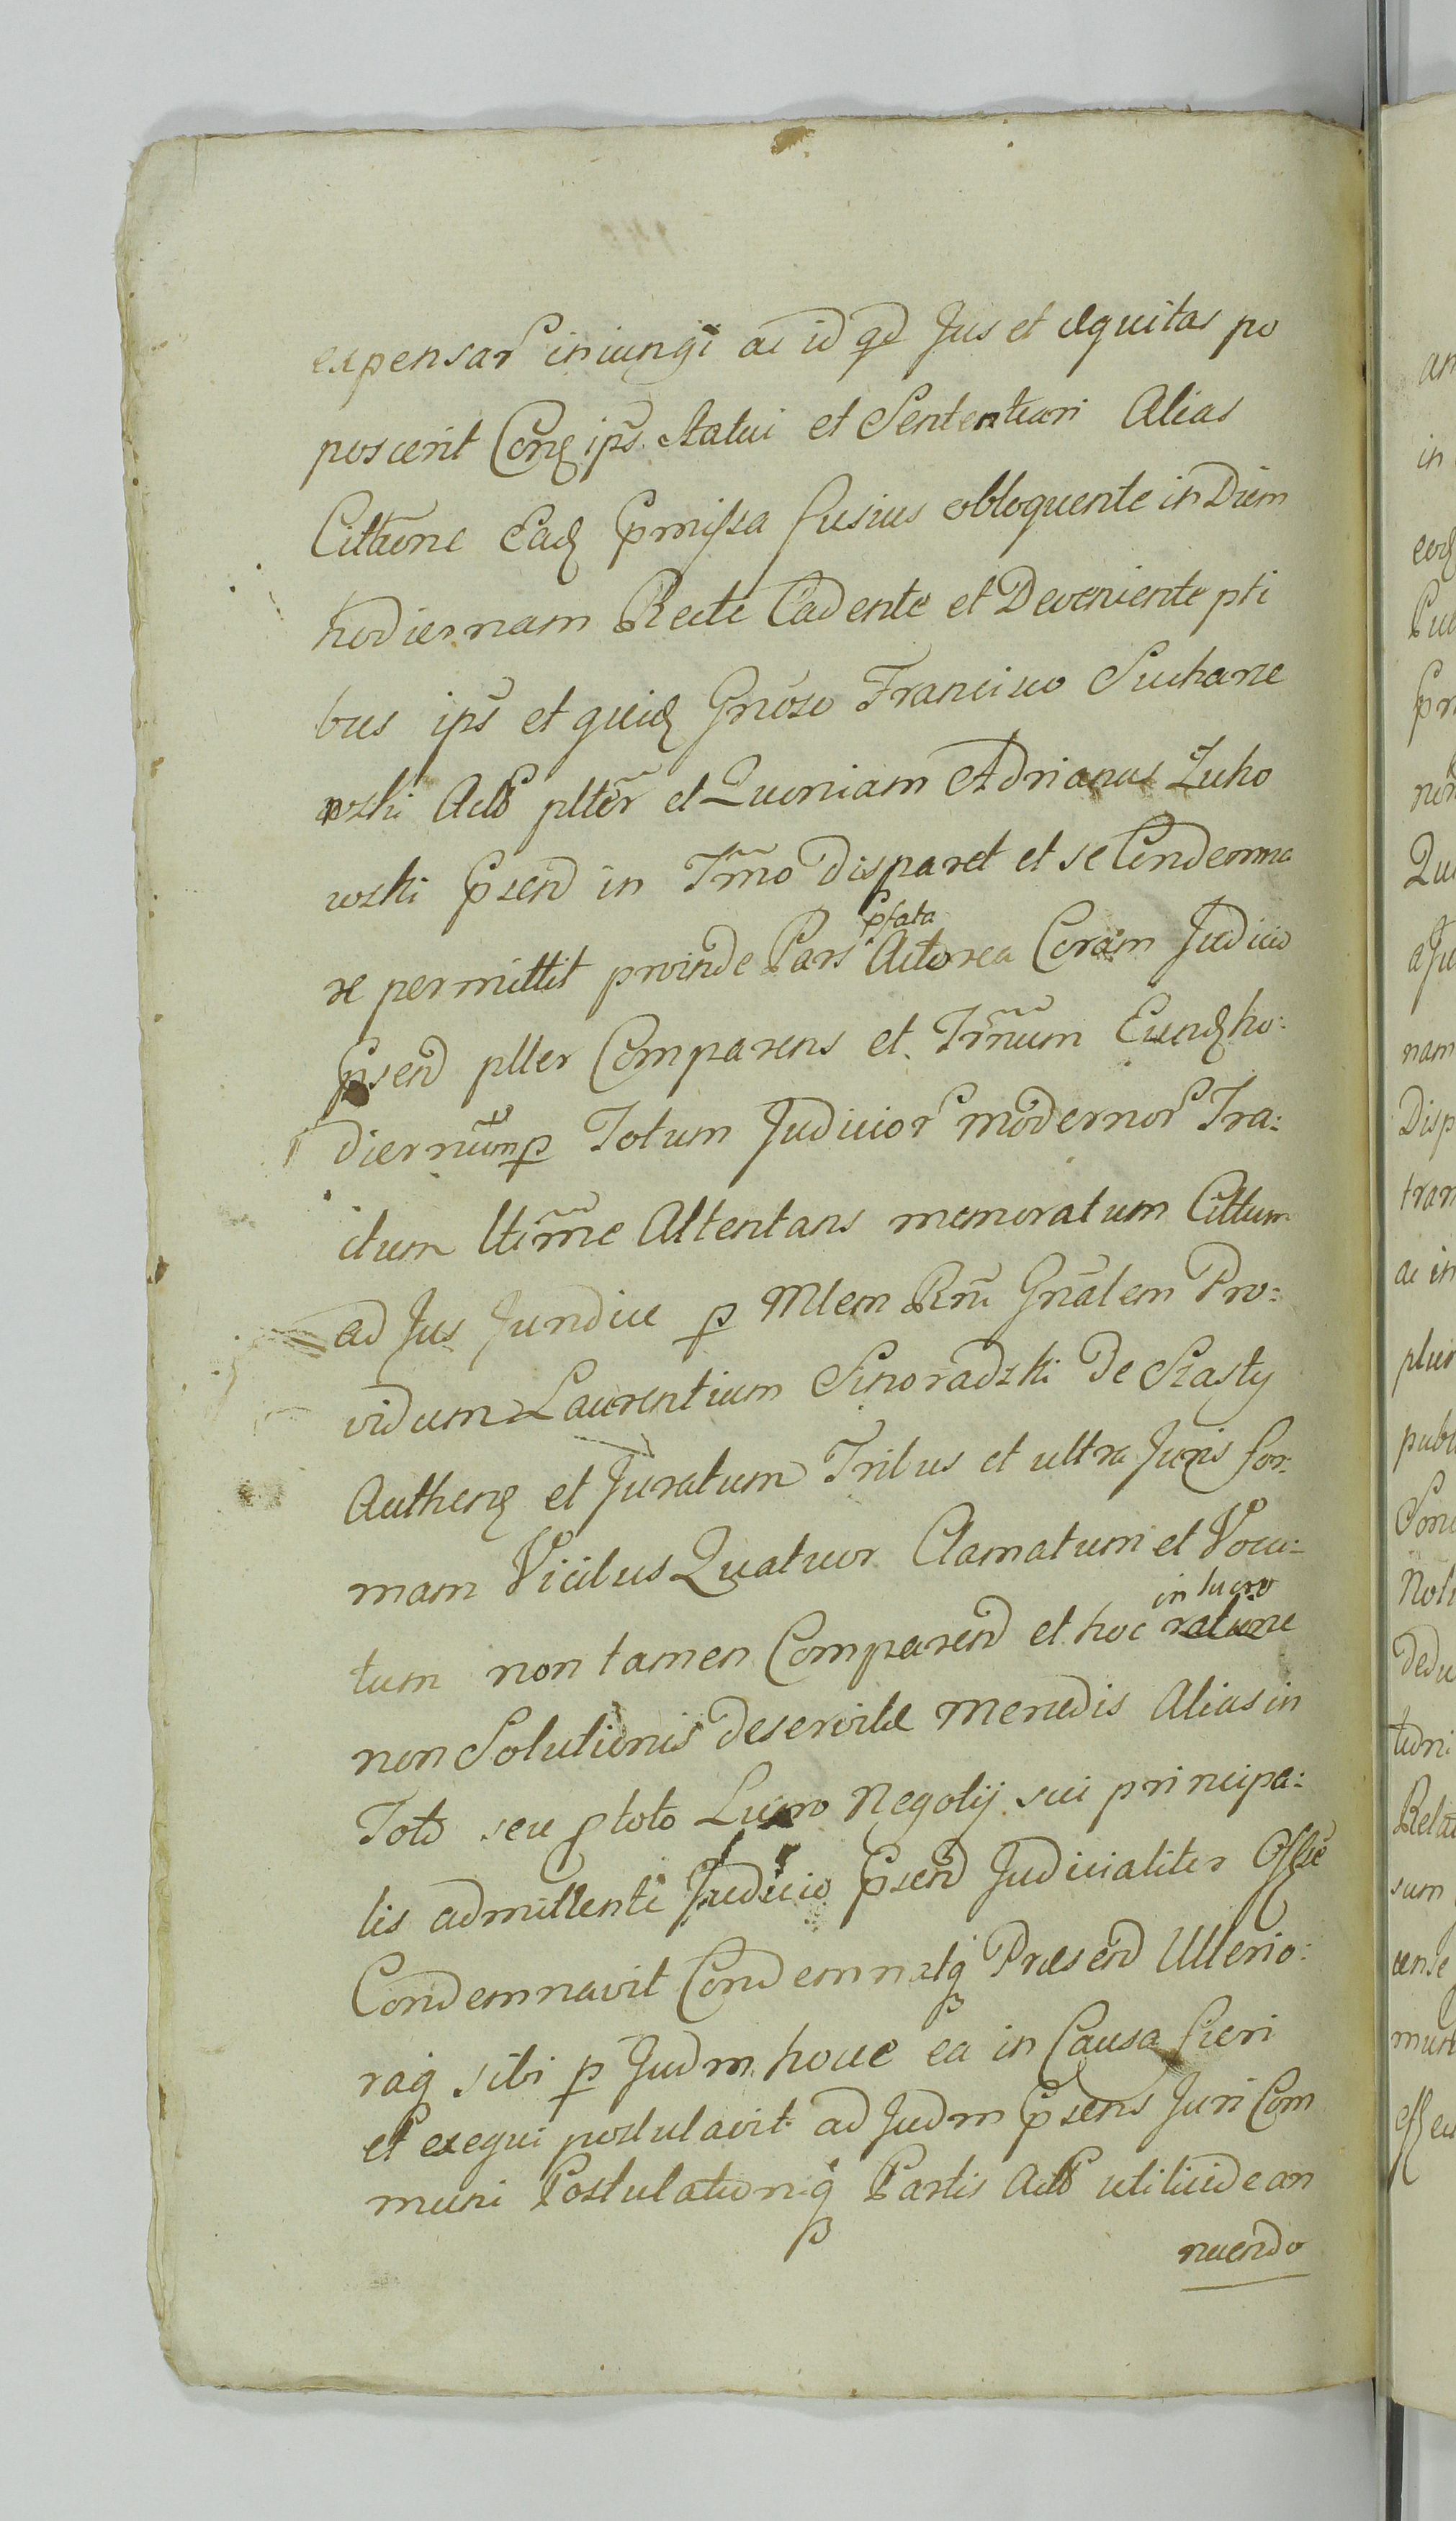 expensar iniungi ac id qd Jus et Æquitas po
poscerit Conq ips statui et Sententiari Alias
Cittaõne Eadq pmissa fusius obloquente in Diem
hodiernam Recte Cadente et Deveniente pti
bus ips et quidq Gnõso Francisco Suchorze
wski Actô plter et Quoniam Adrianus Zuko
wski psend in Tmõ disparet et se Condemna
re permittit proinde Pars pfata Actorea Coram Judicio
psend pller Comparens et Trmnum Eundq ho:
diernum p Totum Judicior modernor Tra:
ctum ltimẽ Attentans memoratum Cittum
ad Jus Juridice p Mlem Rni Gnãlem Pro:
vidum Laurentium Sinoradzki de Szasty
Authenq et Juratum Tribus et ultra Juris for:
mam Vicibus Quatuor Clamatum et Voca:
tum non tamen Comparend et hoc in lucro ratione
non Solutionis deservitæ Mercedis Alias in
Toto seu p toto Lucro Negotij sui principa:
lis admittenti Judicio psend Judicialiter Offse
Condemnavit Condemnatq Præsend Ulterio:
raq sibi p Judm hocce ea in Causa fieri
et exequi postulavit ad Judm psens Juri Com
muni Postulationiq Partis Actô uti licide an
nuendo